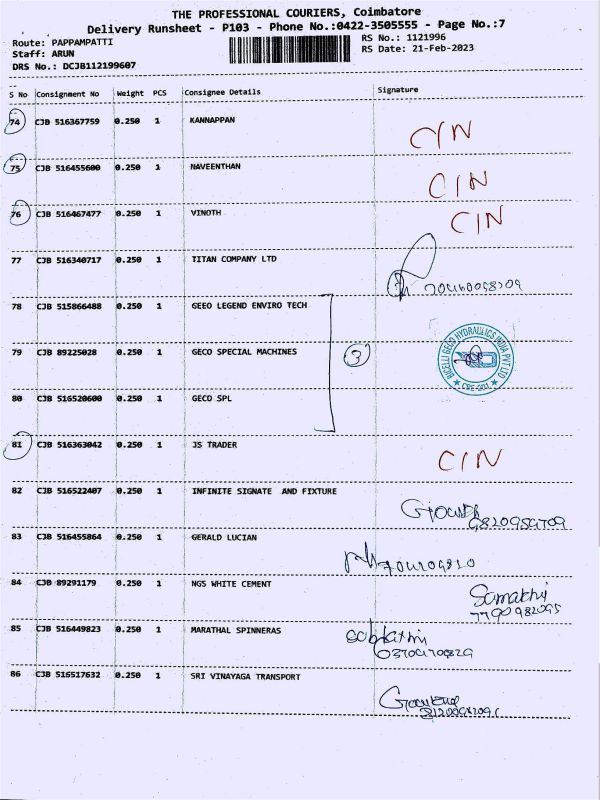 THE PROFESSIONAL COURIERS, Coimbatore
Delivery Runsheet - P103 - Phone No.:0422-3505555 - Page No.:7
Route: PAPPAMPATTI
RS No.: 1121996
Staff: ARUN
RS Date: 21-Feb-2023
DRS No.: DCJB112199607
S No Consignment No Weight PCS Consignee Details Signature
74 CJB 516367759 0.250 1 KANNAPPAN
CIN
75 CJB 516455600 0.250 1 NAVEENTHAN
CIN
76 CJB 516467477 0.250 1 VINOTH
CIN
77 CJB 516340717 0.250 1 TITAN COMPANY LTD
78 CJB 515866488 0.250 1 GEEO LEGEND ENVIRO TECH
79 CJB 89225028 0.250 1 GECO SPECIAL MACHINES
3
BICELLI GECO HYDRAULICS INDIA PVT LTD
80 CJB 516520600 0.250 1 GECO SPL
81 CJB 516363042 0.250 1 JS TRADER
CIN
82 CJB 516522407 0.250 1 INFINITE SIGNATE AND FIXTURE
83 CJB 516455864 0.250 1 GERALD LUCIAN
84 CJB 89291179 0.250 1 NGS WHITE CEMENT
85 CJB 516449823 0.250 1 MARATHAL SPINNERAS
86 CJB 516517632 0.250 1 SRI VINAYAGA TRANSPORT